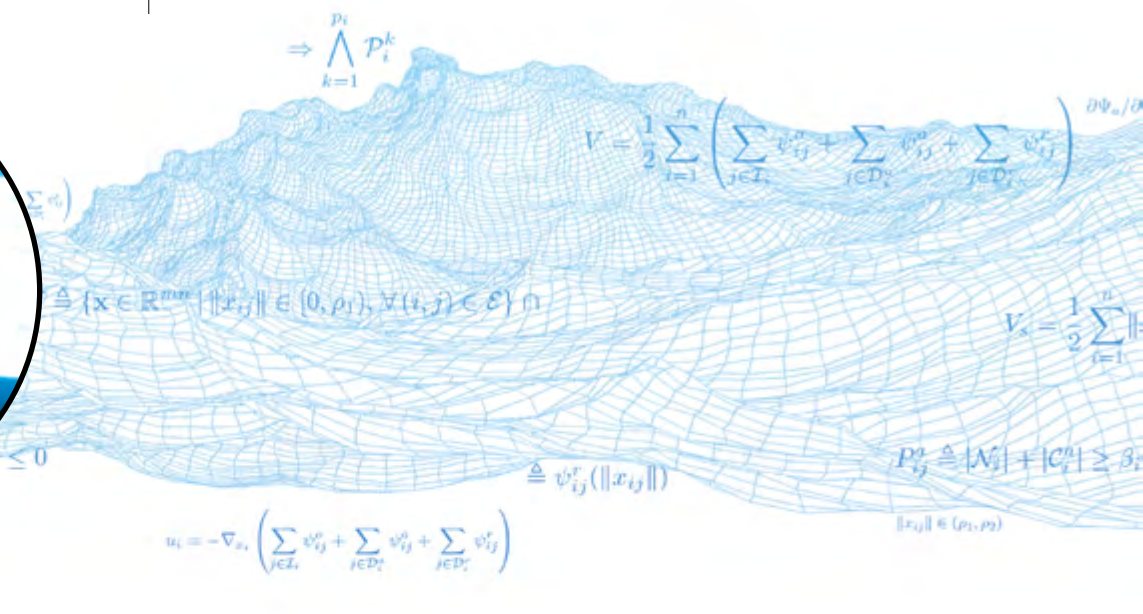 ⇒ ⋀_{k=1}^{p_i} 𝒫_i^k
V = 1/2 ∑_{i=1}^{n} ( ∑_{j∈ℐ_i} ψ_{ij}^o + ∑_{j∈𝒟_i^a} ψ_{ij}^a + ∑_{j∈𝒟_i^r} ψ_{ij}^r )
∂Ψ_a/∂
≜ {𝐱 ∈ ℝ^{mn} | ‖x_{ij}‖ ∈ [0, ρ_1), ∀(i, j) ∈ ℰ} ∩
V_s = 1/2 ∑_{i=1}^{n} ‖
≤ 0
≜ ψ_{ij}^r(‖x_{ij}‖)
P_{ij}^a ≜ |𝒩_i| + |𝒞_i^a| ≥ β
‖x_{ij}‖ ∈ (ρ_1, ρ_2)
u_i = −∇_{x_i} ( ∑_{j∈ℐ_i} ψ_{ij}^o + ∑_{j∈𝒟_i^a} ψ_{ij}^a + ∑_{j∈𝒟_i^r} ψ_{ij}^r )